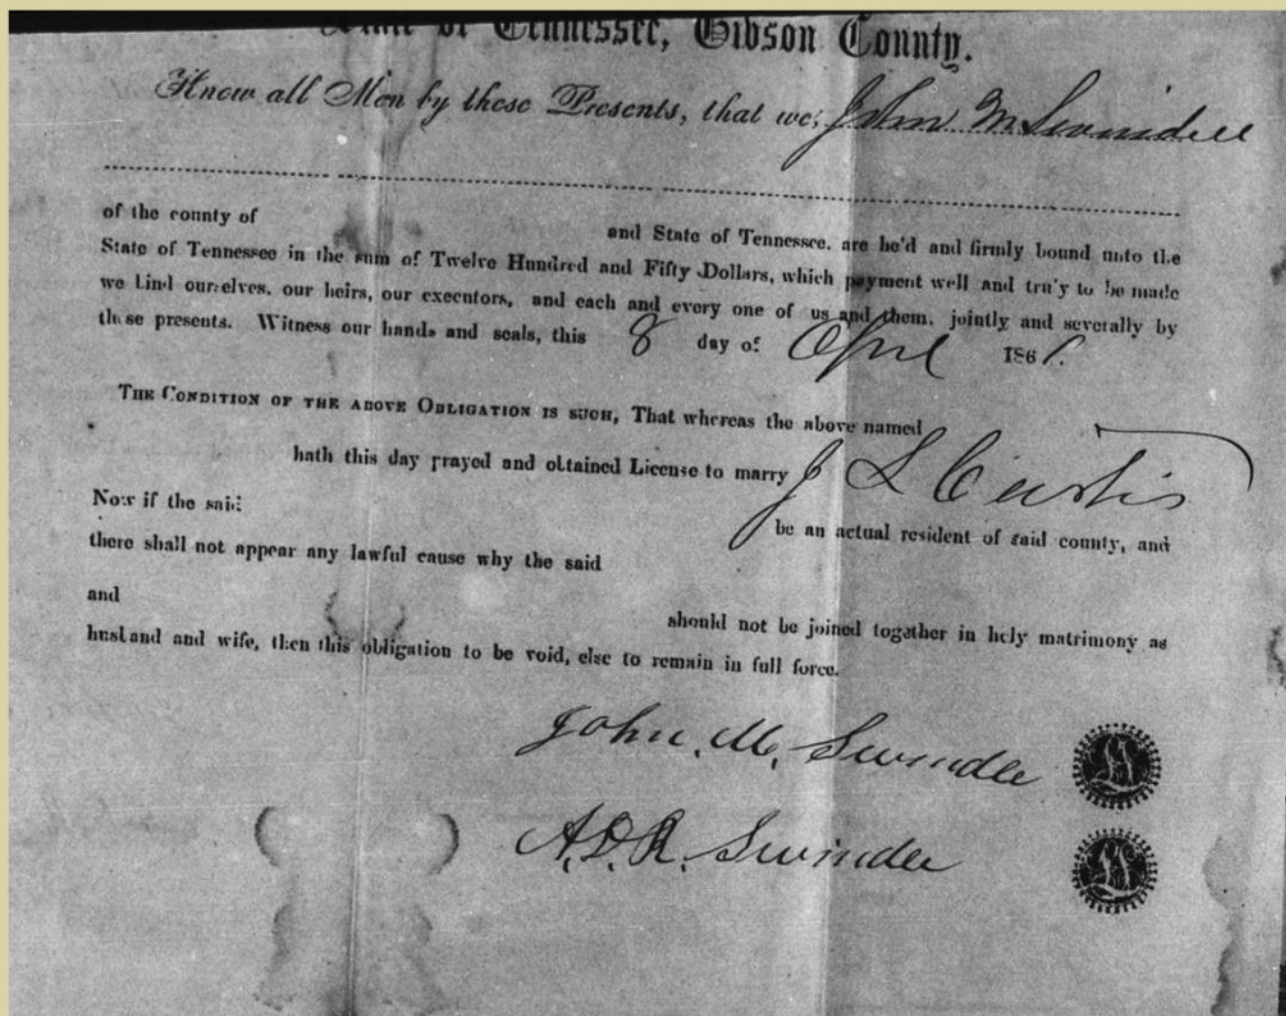 State of Tennessee, Gibson County.
Know all Men by these Presents, that we, John M Swindell
of the county of and State of Tennessee. are he'd and firmly bound unto the
State of Tennessee in the sum of Twelve Hundred and Fifty Dollars, which payment well and tru'y to be made
we bind ourselves, our heirs, our executors, and each and every one of us and them, jointly and severally by
these presents. Witness our hands and seals, this 8 day of April 1861.
THE CONDITION OF THE ABOVE OBLIGATION IS SUCH, That whereas the above named
hath this day prayed and obtained License to marry J L Curtis
Now if the said be an actual resident of said county, and
there shall not appear any lawful cause why the said
and should not be joined together in holy matrimony as
husband and wife, then this obligation to be void, else to remain in full force.
John. M. Swindle
A. D. R. Swindle